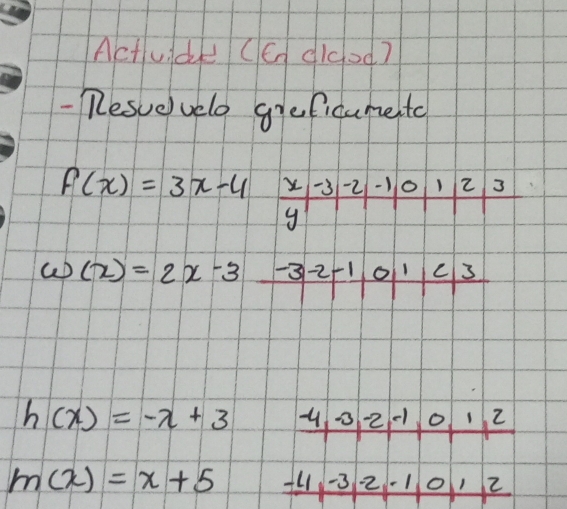 Actividad (En clase)
- Resuelvelo graficamente
f(x) = 3x-4 x -3 -2 -1 0 1 2 3
y
w(x) = 2x-3 -3 -2 -1 0 1 2 3
h(x) = -x + 3 -4 -3 -2 -1 0 1 2
m(x) = x + 5 -4 -3 -2 -1 0 1 2